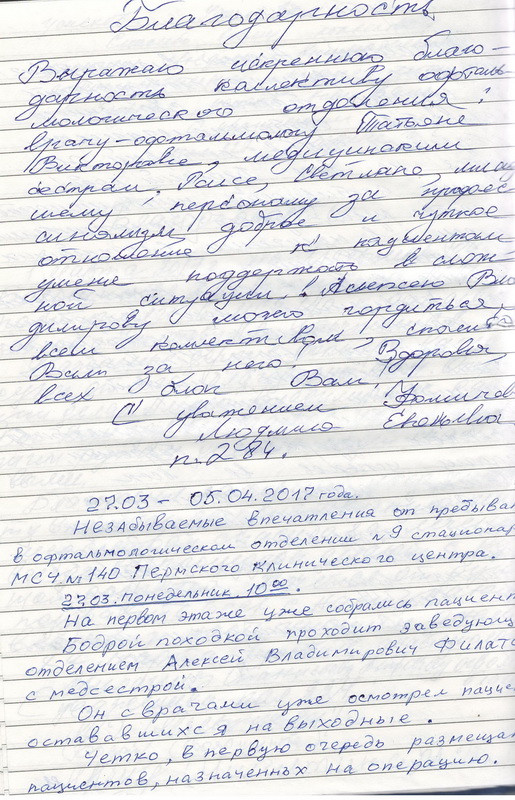 Благодарность
Выражаю искреннюю благо-
дарность коллективу офталь-
мологического отделения:
врачу-офтальмологу Татьяне
Викторовне, медицинским
сестрам: Раисе, Светлане, млад
шему персоналу за профес
сионализм доброе и чуткое
отношение к пациентам
умение поддержать в слож-
ной ситуации. Алексею Вла
димировичу можно гордиться
всем коллективом, спасибо
Вам за него. Здоровья,
всех благ Вам!
С уважением
Людмила
п. 284.
27.03 – 05.04.2017 года.
Незабываемые впечатления от пребыван
в офтальмологическом отделении №9 стационар
МСЧ №140 Пермского клинического центра.
27.03. Понедельник. 10 00.
На первом этаже уже собрались пациент
Бодрой походкой проходит заведующ
отделением Алексей Владимирович Филат
с медсестрой.
Он с врачами уже осмотрел пацие
остававшихся на выходные.
Четко, в первую очередь размеща
пациентов, назначенных на операцию.